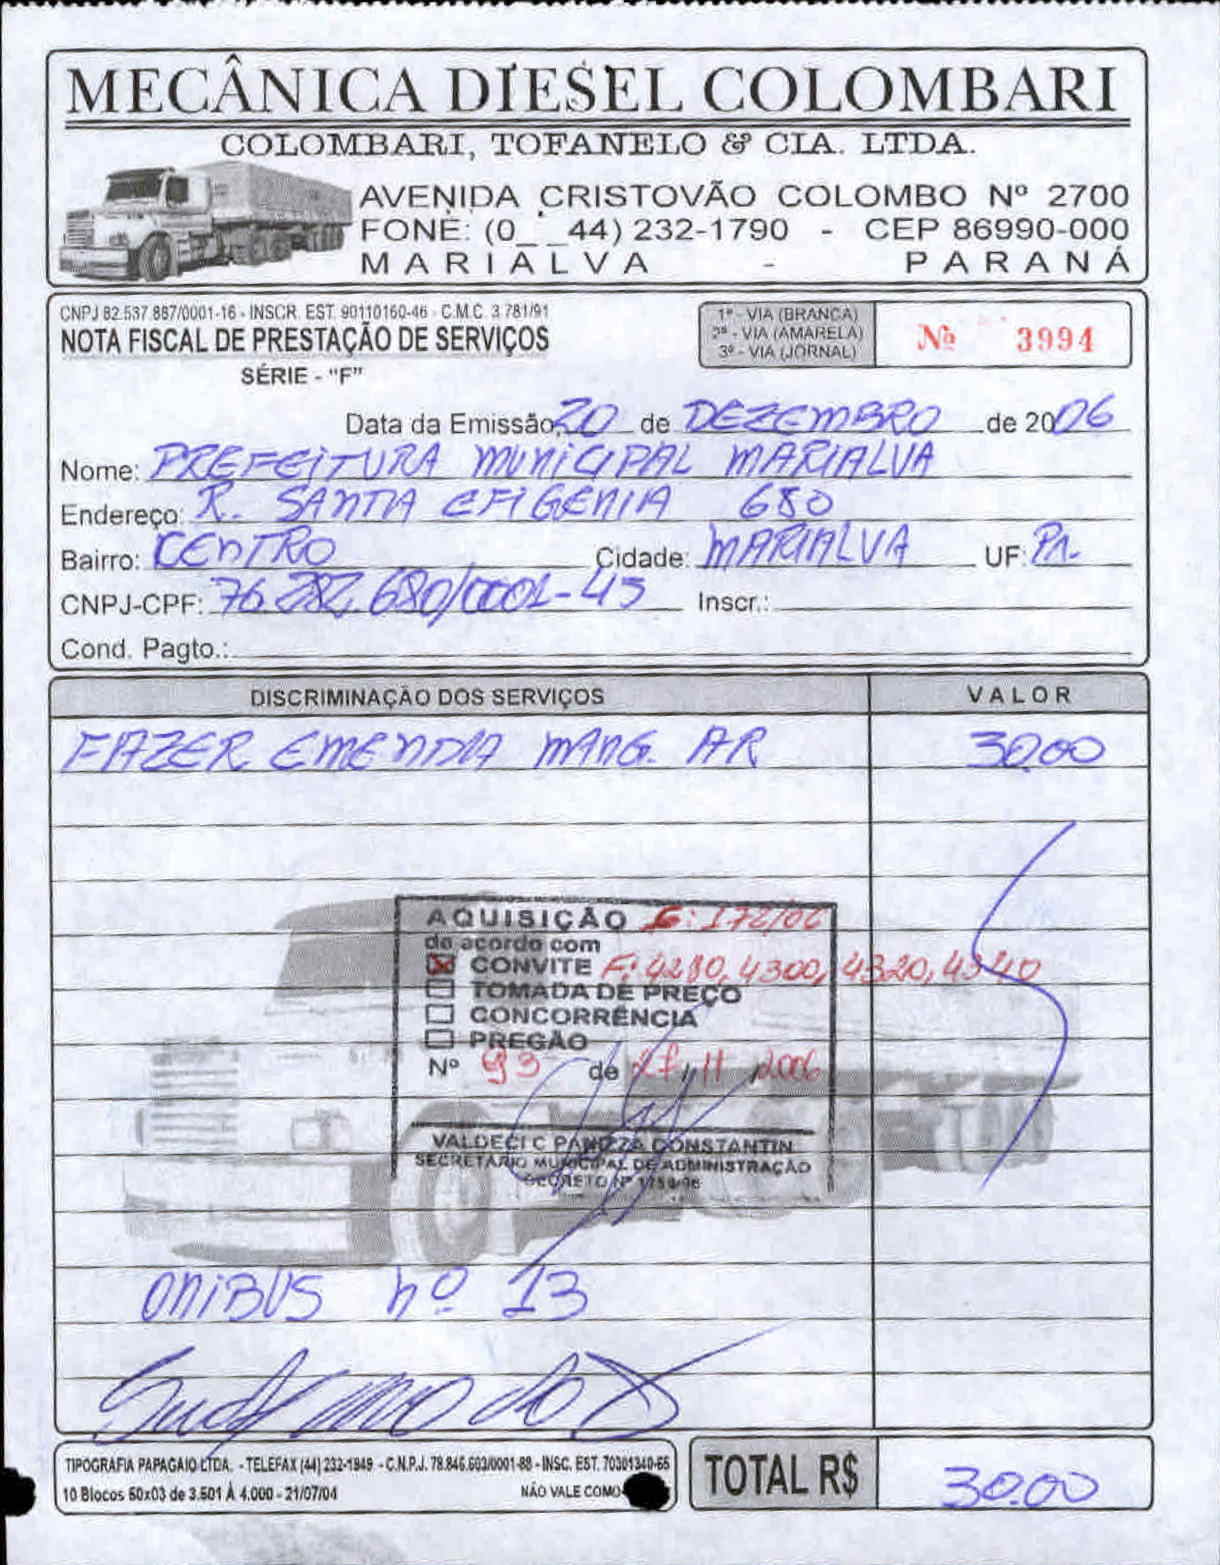 MECÂNICA DIESEL COLOMBARI
COLOMBARI, TOFANELO & CIA. LTDA.
AVENIDA CRISTOVÃO COLOMBO Nº 2700
FONE: (0_ _44) 232-1790 - CEP 86990-000
MARIALVA - PARANÁ
CNPJ 82.537.887/0001-16 - INSCR. EST. 90110160-46 - C.M.C. 3.781/91
NOTA FISCAL DE PRESTAÇÃO DE SERVIÇOS
SÉRIE - "F"
1ª - VIA (BRANCA)
2ª - VIA (AMARELA)
3ª - VIA (JORNAL)
Nº 3994
Data da Emissão, 20 de DEZEMBRO de 2006
Nome: PREFEITURA MUNICIPAL MARIALVA
Endereço: R. SANTA EFIGENIA 680
Bairro: CENTRO Cidade: MARIALVA UF: PR.
CNPJ-CPF: 76.282.680/0001-45 Inscr.:
Cond. Pagto.:
DISCRIMINAÇÃO DOS SERVIÇOS VALOR
FAZER EMENDA MANG. AR 30,00
AQUISIÇÃO 172/06
de acordo com
CONVITE F: 4280, 4300, 4320, 4340
TOMADA DE PREÇO
CONCORRÊNCIA
PREGÃO
Nº 93 de 27/11/2006
VALDECI C PANIZZA CONSTANTIN
SECRETÁRIO MUNICIPAL DE ADMINISTRAÇÃO
DECRETO Nº
ONIBUS nº 13
TIPOGRAFIA PAPAGAIO LTDA. - TELEFAX (44) 232-1849 - C.N.P.J. 78.846.603/0001-88 - INSC. EST. 70301340-65
10 Blocos 50x03 de 3.501 À 4.000 - 21/07/04 NÃO VALE COMO
TOTAL R$ 30,00